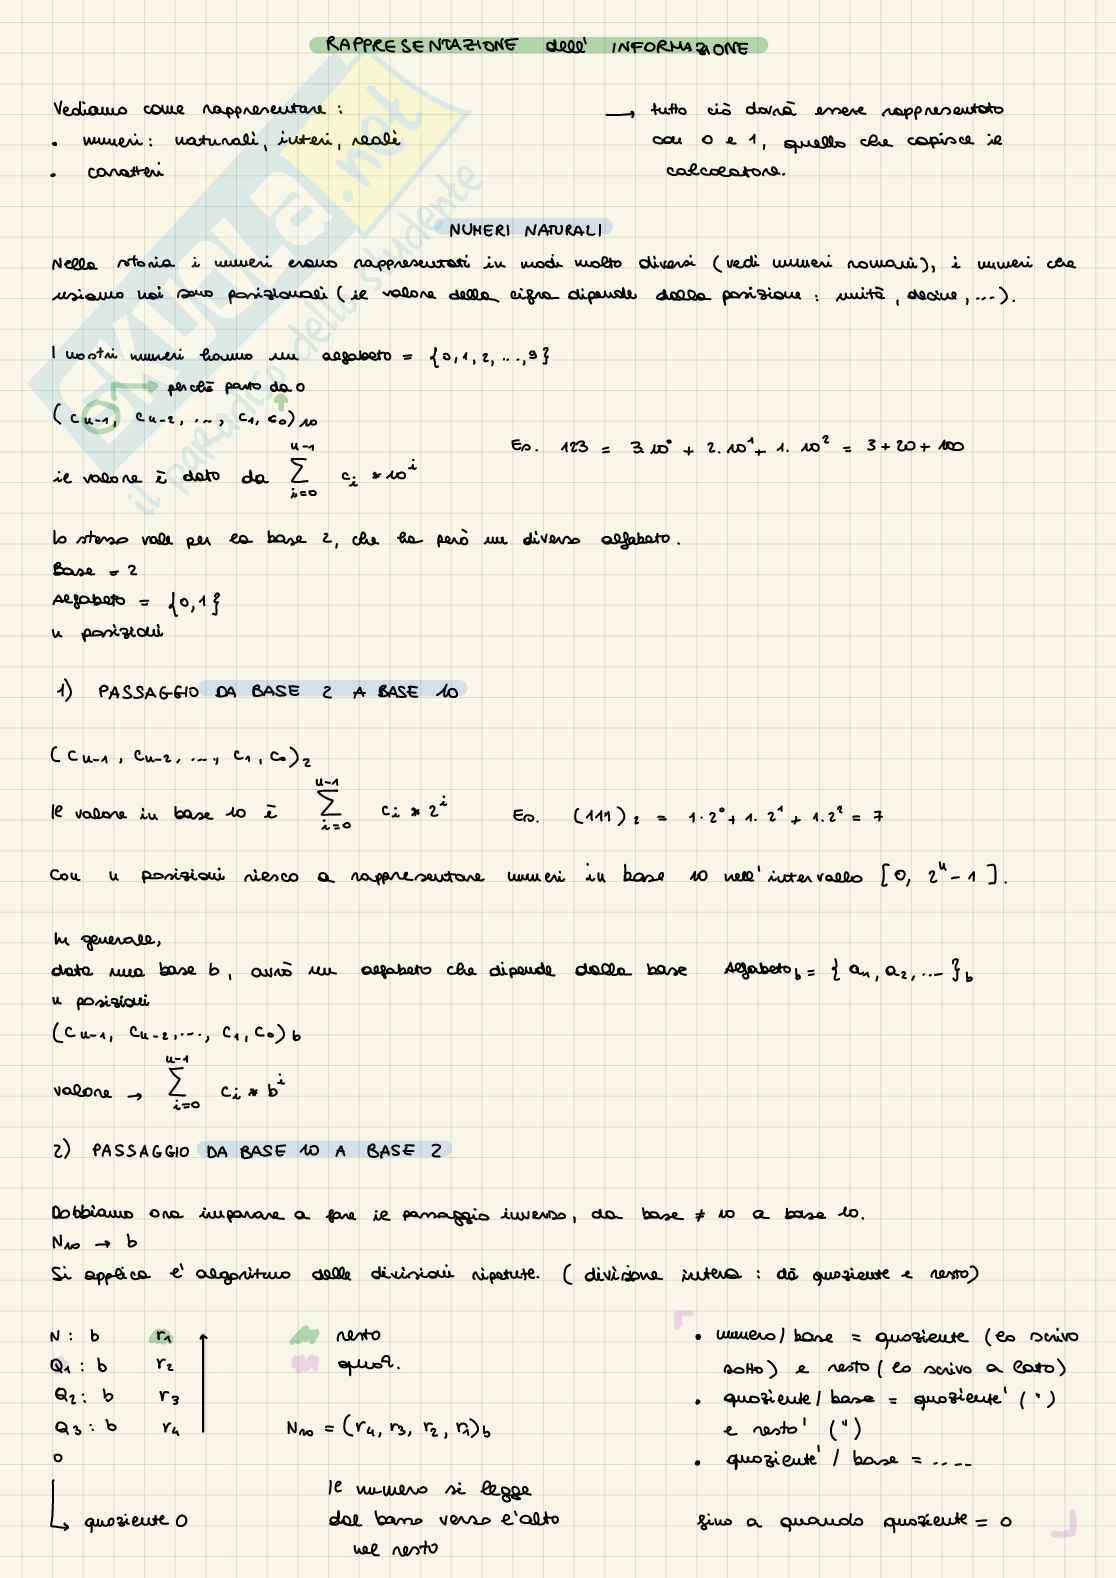 RAPPRESENTAZIONE dell' INFORMAZIONE
Vediamo come rappresentare :
• numeri: naturali, interi, reali
• caratteri
→ tutto ciò dovrà essere rappresentato
con 0 e 1, quello che capisce il
calcolatore.
NUMERI NATURALI
Nella storia i numeri erano rappresentati in modi molto diversi (vedi numeri romani), i numeri che
usiamo noi sono posizionali (il valore della cifra dipende dalla posizione : unità, decine, ...).
I nostri numeri hanno un alfabeto = {0,1,2, ...,9}
→ perchè parto da 0
(Cn-1, Cn-2, ..., C1, C0)10
il valore è dato da n-1 Σ i=0 ci * 10^i
Es. 123 = 3·10° + 2·10¹ + 1·10² = 3+20+100
Lo stesso vale per la base 2, che ha però un diverso alfabeto.
Base = 2
Alfabeto = {0,1}
n posizioni
1) PASSAGGIO DA BASE 2 A BASE 10
(Cn-1, Cn-2, ..., C1, C0)2
Il valore in base 10 è n-1 Σ i=0 ci * 2^i
Es. (111)2 = 1·2° + 1·2¹ + 1·2² = 7
Con n posizioni riesco a rappresentare numeri in base 10 nell'intervallo [0, 2^n-1].
In generale,
data una base b, avrò un alfabeto che dipende dalla base Alfabeto_b = {a1, a2, ...}b
n posizioni
(Cn-1, Cn-2, ..., C1, C0)b
valore → n-1 Σ i=0 ci * b^i
2) PASSAGGIO DA BASE 10 A BASE 2
Dobbiamo ora imparare a fare il passaggio inverso, da base ≠ 10 a base 10.
N10 → b
Si applica l'algoritmo delle divisioni ripetute. (divisione intera : dà quoziente e resto)
N : b r1
Q1 : b r2
Q2 : b r3
Q3 : b r4
0
→ quoziente 0
resto
quoz.
N10 = (r4, r3, r2, r1)b
Il numero si legge
dal basso verso l'alto
nel resto
• numero / base = quoziente (lo scrivo
sotto) e resto (lo scrivo a lato)
• quoziente / base = quoziente' (")
e resto' (")
• quoziente' / base = ....
fino a quando quoziente = 0
SKUOLA.net
il paradiso dello studente